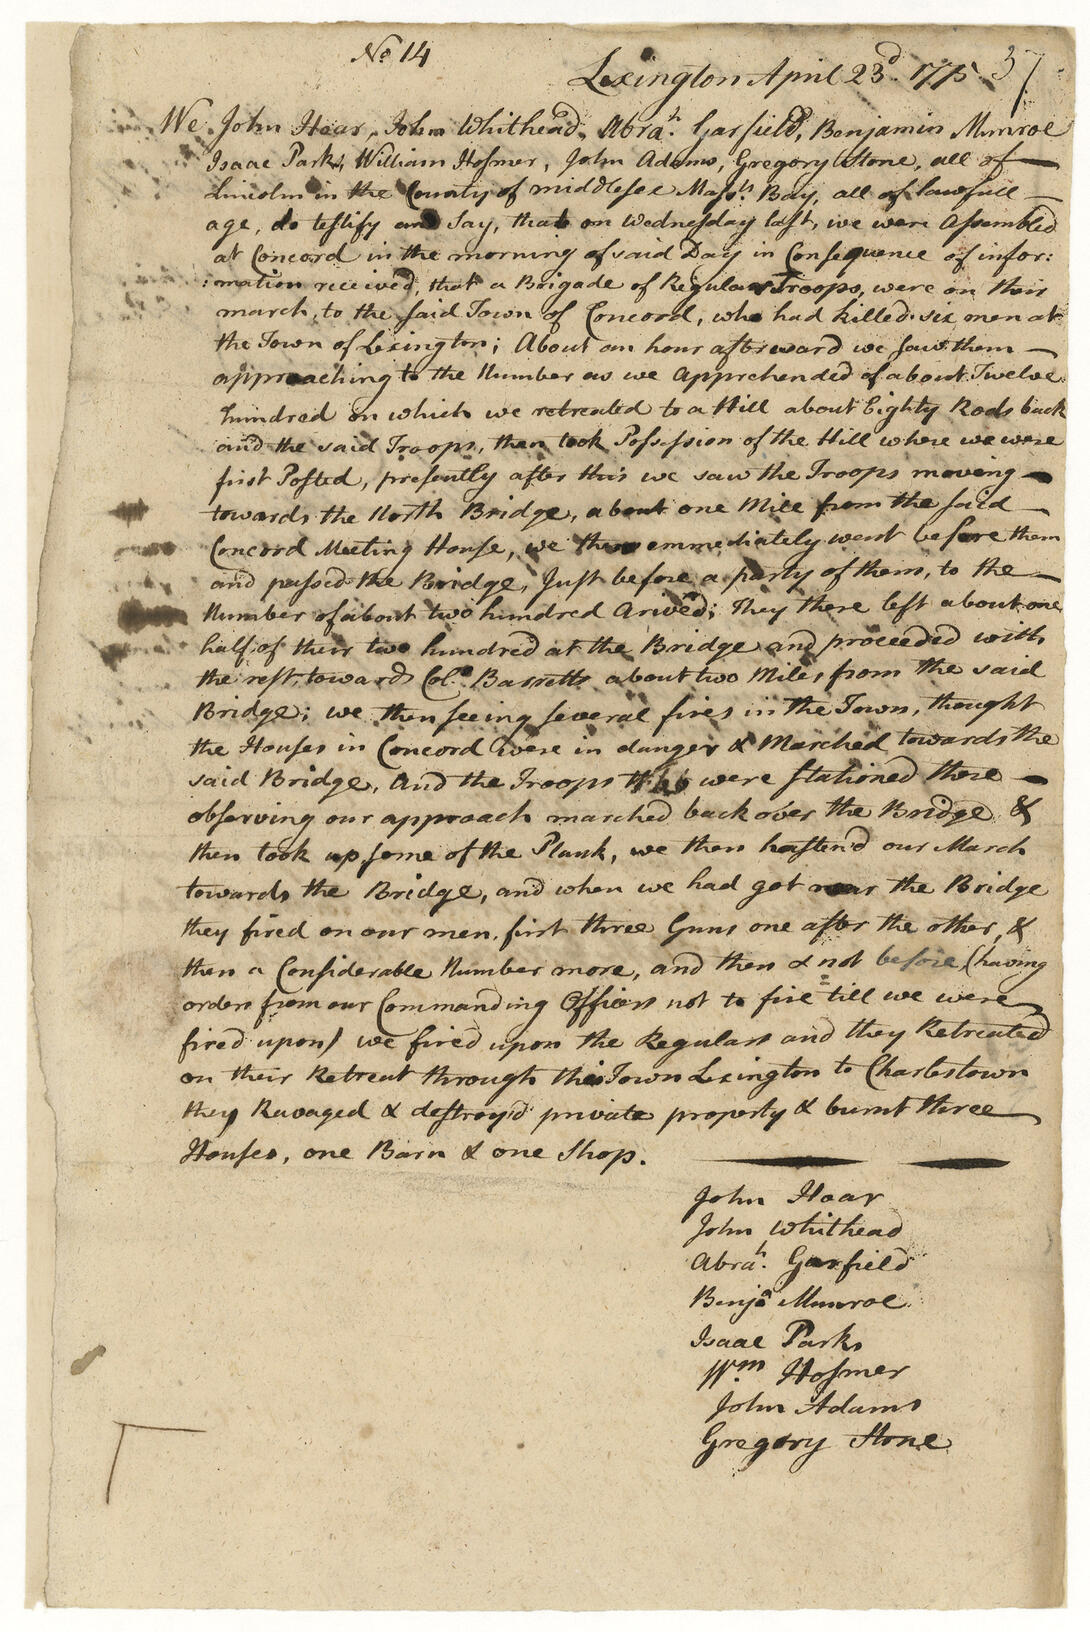 No 14
Lexington April 23d. 1775. 37
We John Hoar, John Whithead, Abrah. Garfield, Benjamin Munroe
Isaac Parks, William Hosmer, John Adams, Gregory Stone, all of
Lincoln in the County of middlesex Massts. Bay, all of lawfull
age, do testify and say, that on Wednesday last, we were Assembled
at Concord in the morning of said Day in Consequence of infor:
:mation received, that a Brigade of Regular Troops, were on their
march, to the said Town of Concord, who had killed six men at
the Town of Lexington; About an hour afterward we saw them
approaching to the Number as we Apprehended of about Twelve
hundred on which we retreated to a Hill about Eighty Rods back
and the said Troops, then took Possession of the Hill where we were
first Posted, presently after this we saw the Troops moveing
towards the North Bridge, about one Mile from the said
Concord Meeting House, we then emmediately went before them
and passed the Bridge, Just before a party of them, to the
Number of about two hundred Arived; They there left about one
half of their two hundred at the Bridge and proceeded with
the rest, toward Colo. Barretts about two Miles from the said
Bridge; we then seeing several fires in the Town, thought
the Houses in Concord were in danger & Marched towards the
said Bridge, And the Troops were stationed there
observing our approach marched back over the Bridge &
then took up some of the Plank, we then hasten'd our March
towards the Bridge, and when we had got near the Bridge
they fired on our men, first three Guns one after the other, &
then a Considerable Number more, and then & not before (having
orders from our Commanding Officers not to fire till we were
fired upon) we fired upon the Regulars and they Retreated
on their Retreat through this Town Lexington to Charlestown
they Ravaged & destroy'd private property & burnt three
Houses, one Barn & one Shop.
John Hoar
John Whithead
Abrah. Garfield
Benja Munroe
Isaac Parks
Wm. Hosmer
John Adams
Gregory Stone